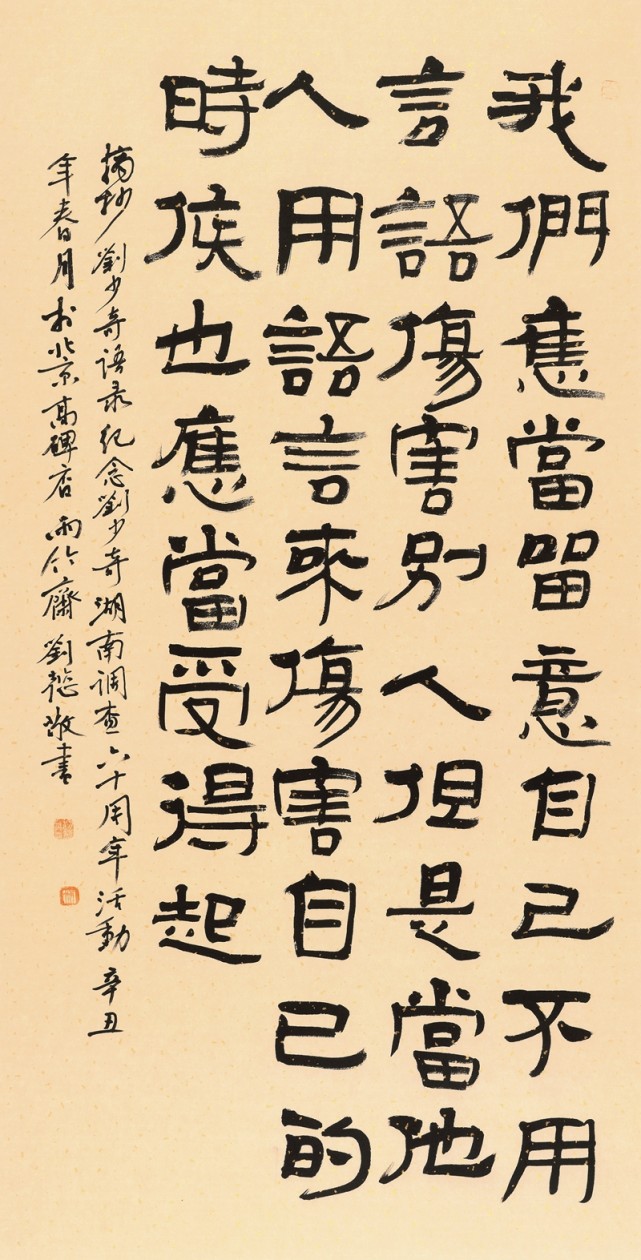 我們應當留意自己不用
言語傷害別人但是當他
人用語言來傷害自己的
時候也應當受得起
摘抄劉少奇语录纪念劉少奇湖南调查六十周年活動辛丑
年春月於北京高碑店雨竹齋劉懿敬書